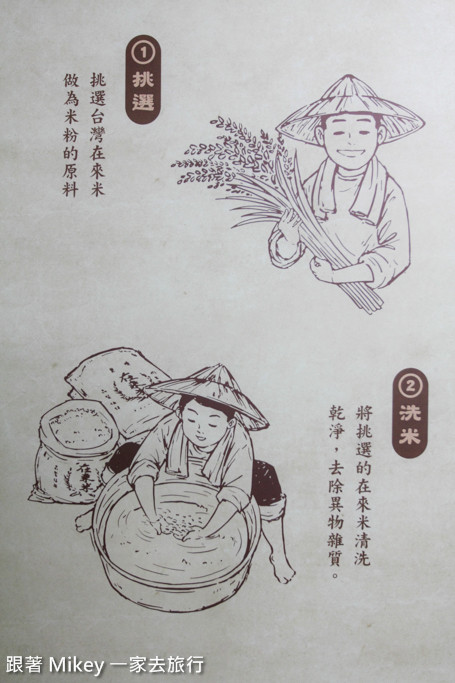 ① 挑選
挑選台灣在來米
做為米粉的原料
② 洗米
將挑選的在來米清洗
乾淨，去除異物雜質。
在來米
跟著 Mikey 一家去旅行